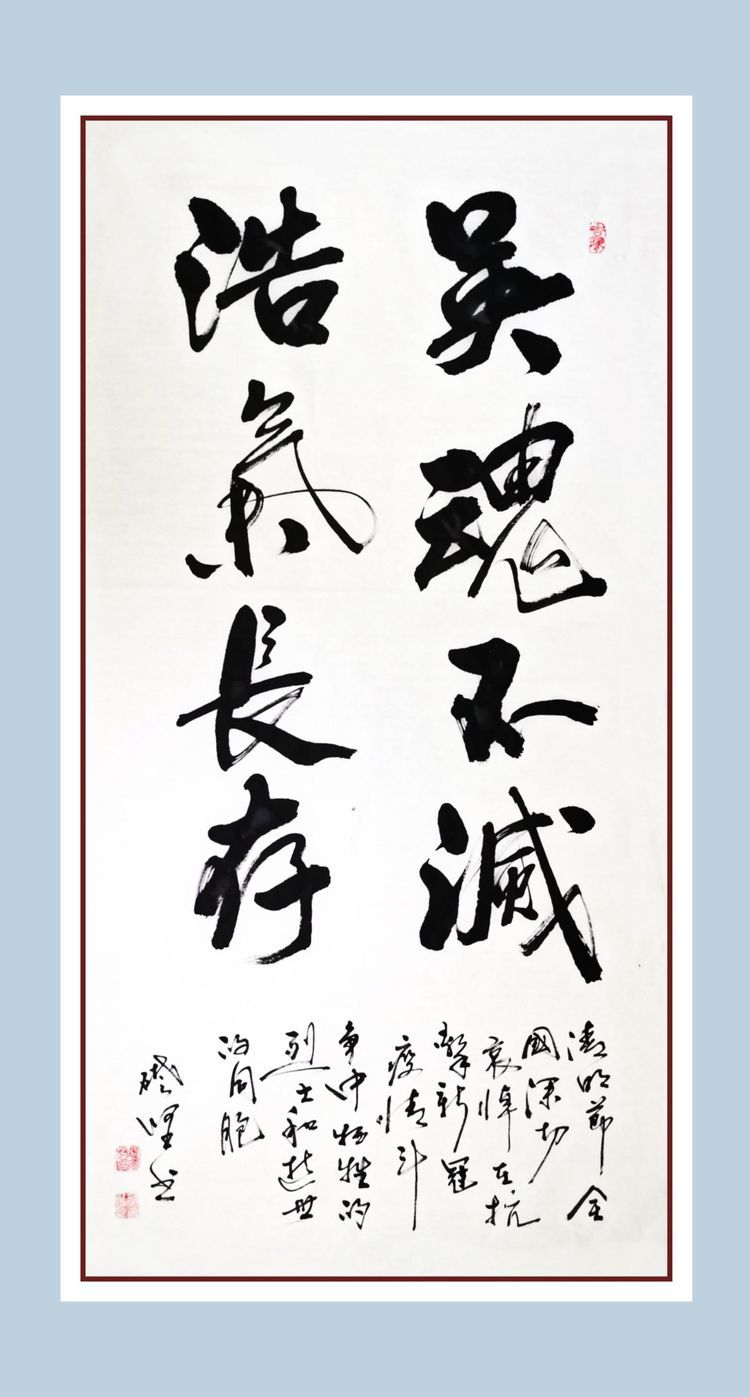 英魂不滅
浩氣長存
清明節全
國深切
哀悼在抗
擊新冠
疫情斗
争中牺牲的
烈士和逝世
的同胞
书